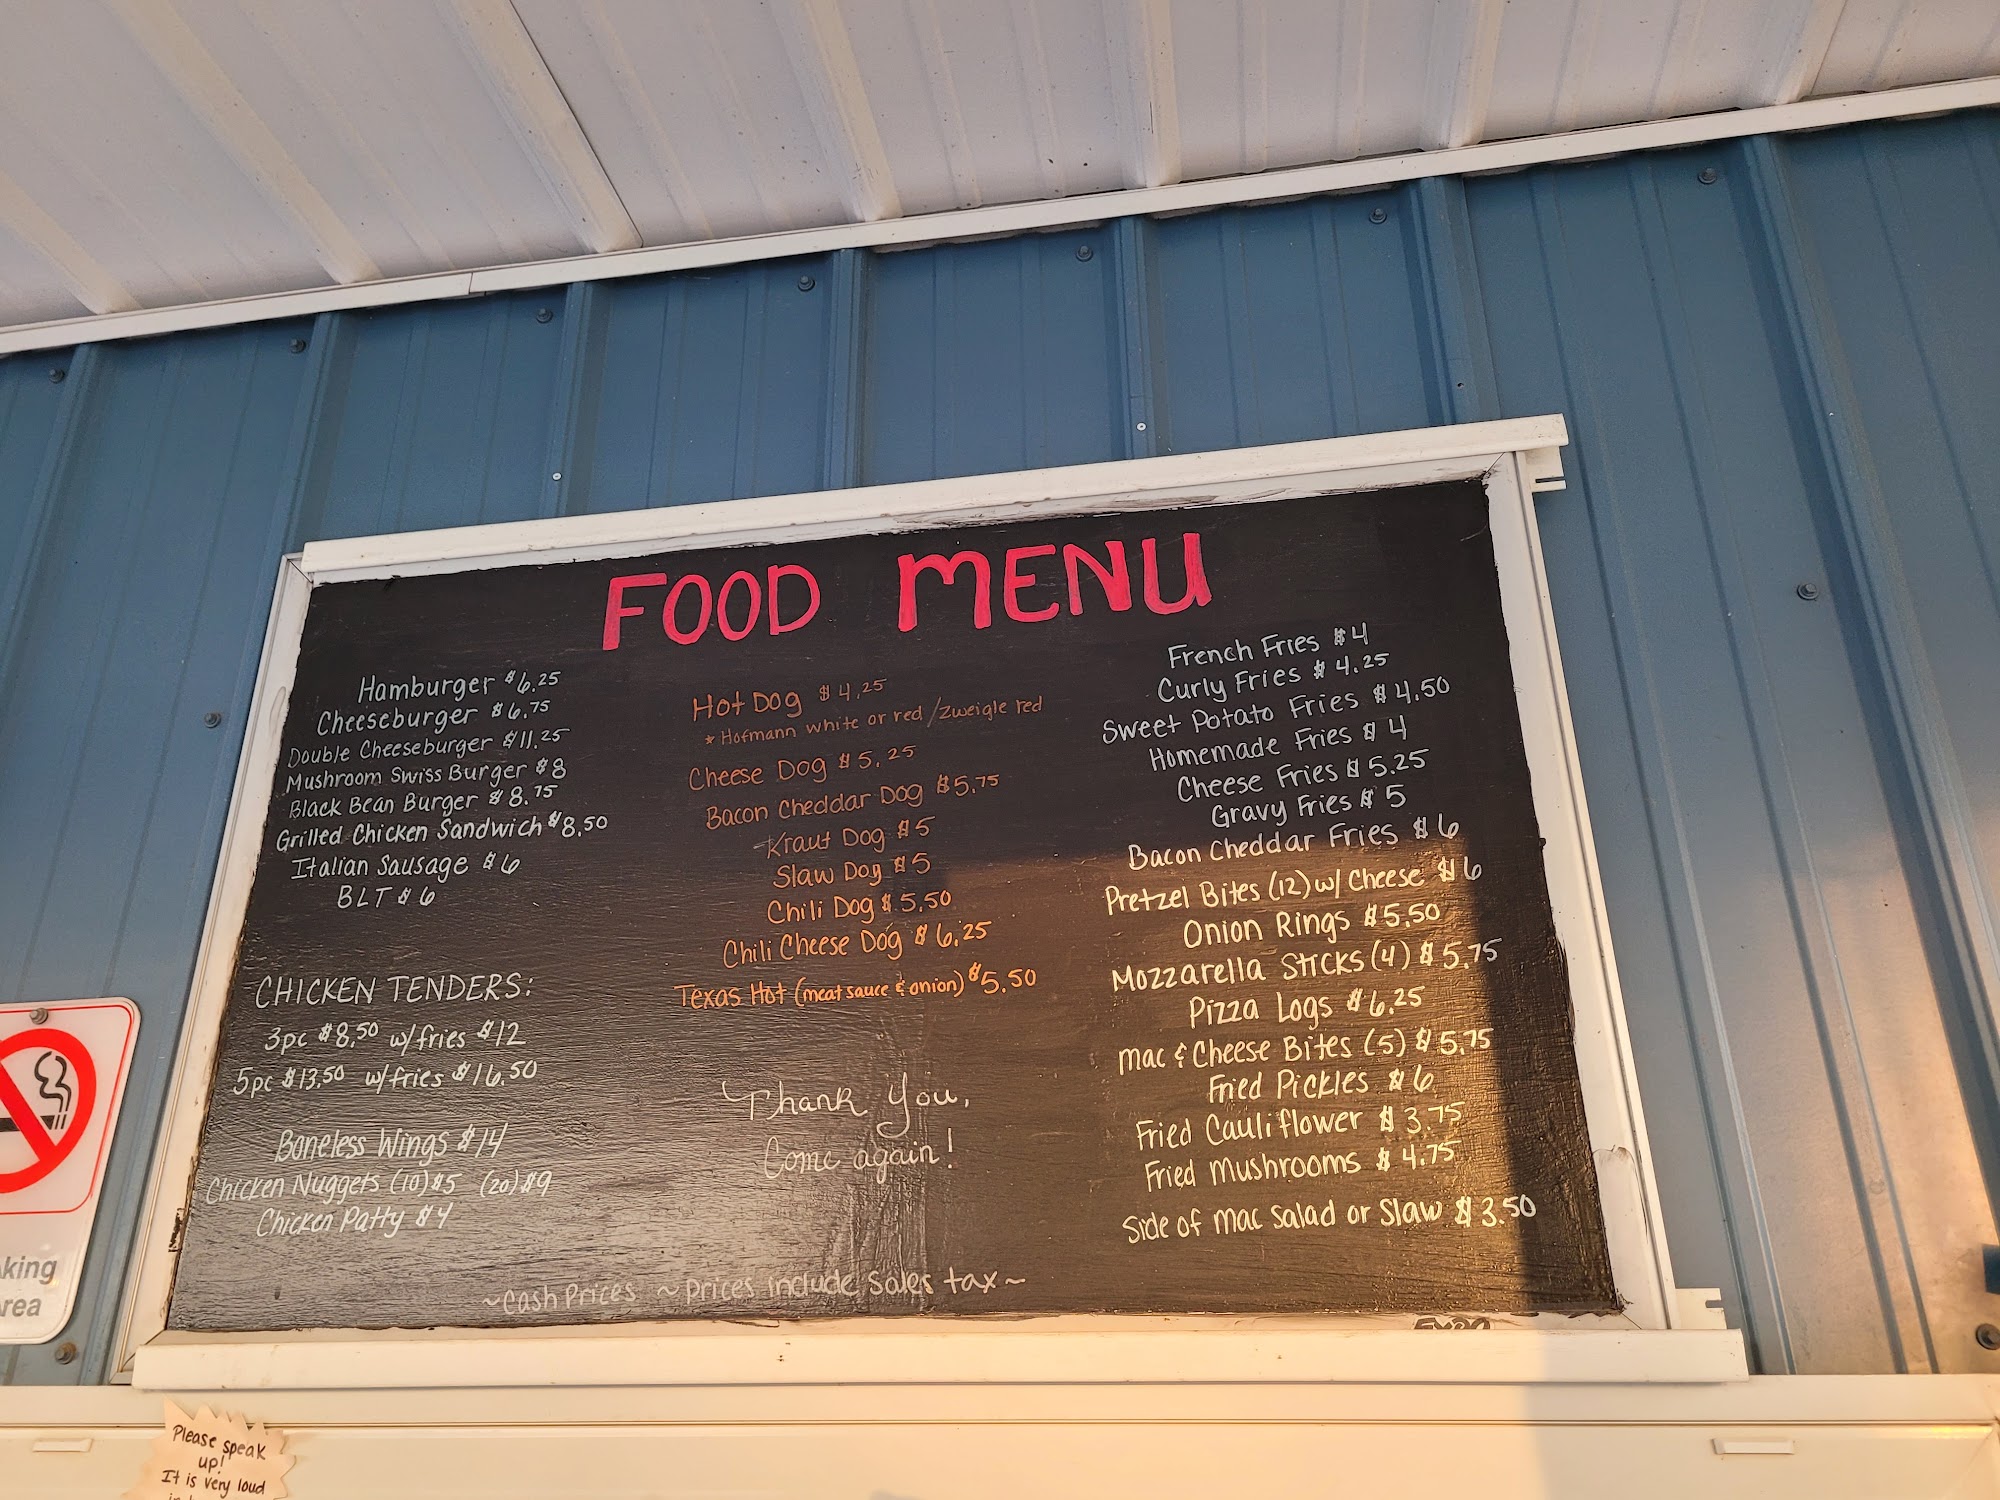 FOOD MENU
Hamburger $6.25
Cheeseburger $6.75
Double Cheeseburger $11.25
Mushroom Swiss Burger $8
Black Bean Burger $8.75
Grilled Chicken Sandwich $8.50
Italian Sausage $6
BLT $6
CHICKEN TENDERS:
3pc $8.50 w/fries $12
5pc $13.50 w/fries $16.50
Boneless Wings $14
Chicken Nuggets (10) $5 (20) $9
Chicken Patty $4
Hot Dog $4.25
* Hofmann white or red/Zweigle red
Cheese Dog $5.25
Bacon Cheddar Dog $5.75
Kraut Dog $5
Slaw Dog $5
Chili Dog $5.50
Chili Cheese Dog $6.25
Texas Hot (meat sauce & onion) $5.50
Thank You,
Come again!
French Fries $4
Curly Fries $4.25
Sweet Potato Fries $4.50
Homemade Fries $4
Cheese Fries $5.25
Gravy Fries $5
Bacon Cheddar Fries $6
Pretzel Bites (12) w/ Cheese $6
Onion Rings $5.50
Mozzarella Sticks (4) $5.75
Pizza Logs $6.25
Mac & Cheese Bites (5) $5.75
Fried Pickles $6
Fried Cauliflower $3.75
Fried Mushrooms $4.75
Side of Mac Salad or Slaw $3.50
~Cash Prices ~Prices include Sales tax~
king
rea
Please speak
up!
It is very loud